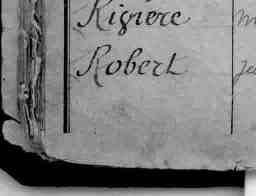 Rigiere
Robert